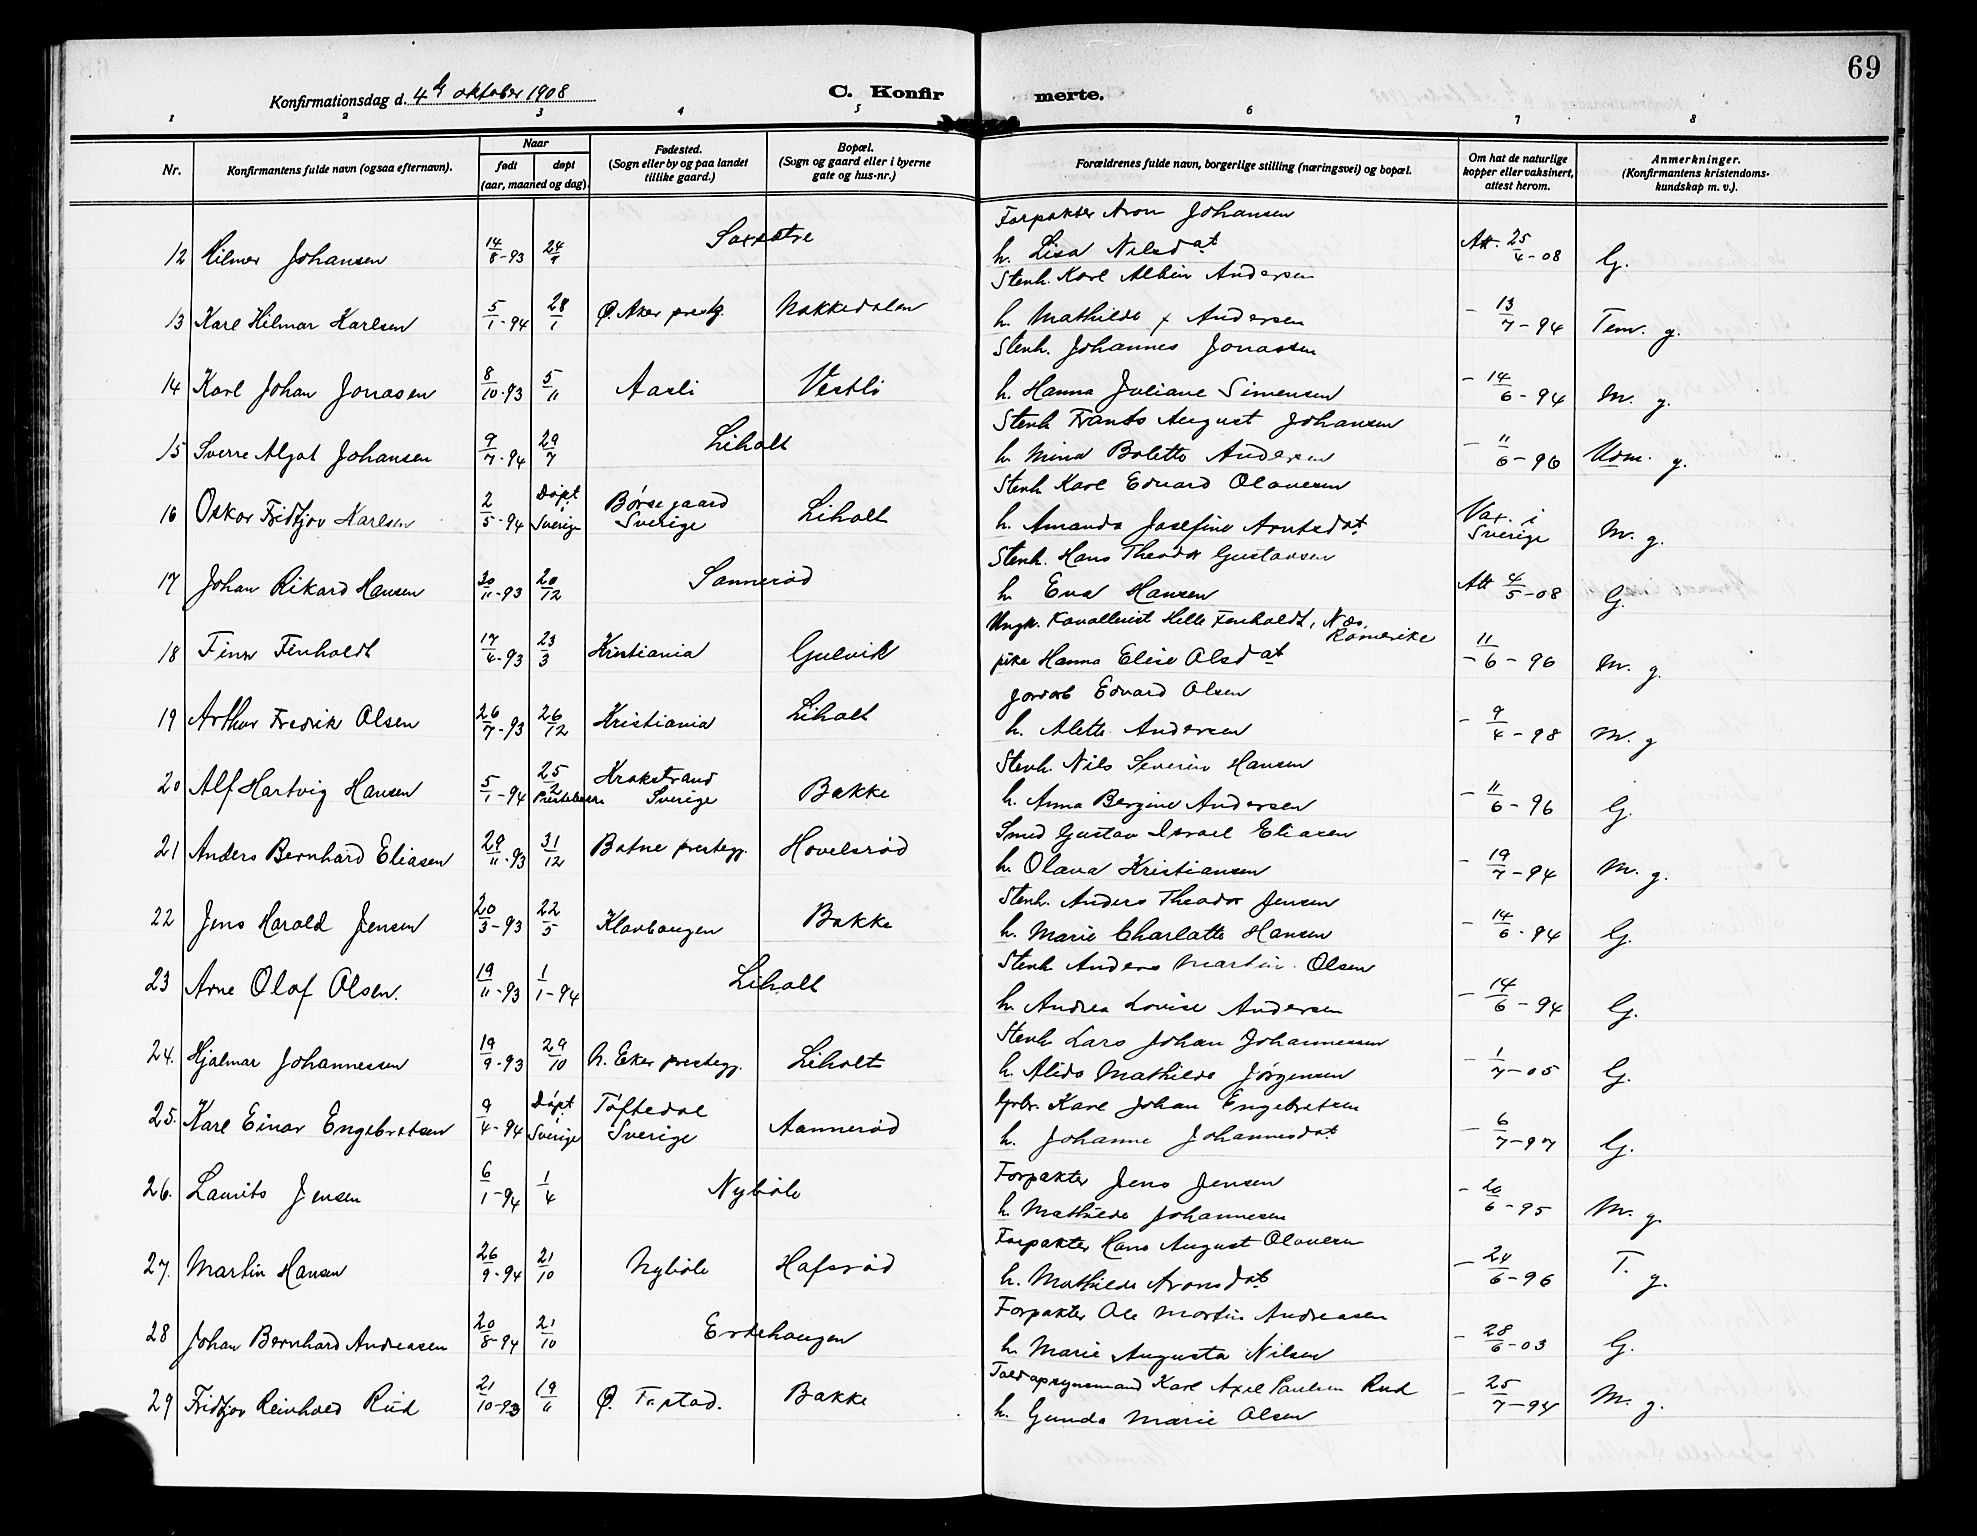 69
Konfirmationsdag d. 4de oktober 1908
C. Konfirmerte.
1 2 3 4 5 6 7 8
Nr. Konfirmantens fulde navn (ogsaa efternavn). Naar født døpt (aar, maaned og dag). Fødested. (Sogn eller by og paa landet tillike gaard.) Bopæl. (Sogn og gaard eller i byerne gate og hus-nr.) Forældrenes fulde navn, borgerlige stilling (næringsvei) og bopæl. Om hat de naturlige kopper eller vaksinert, attest herom. Anmerkninger. (Konfirmantens kristendomskundskap m. v.).
Forpakter Aron Johansen
12 Rilmer Johansen 14/8-93 24/9 h. Lisa Nilsdat Att. 25/4-08 G.
Stenh. Karl Albin Andersen
13 Karl Hilmar Karlsen 5/1-94 28/1 Ø. Aker prestg. Nakkedalen h. Mathilde Andersen - 13/7-94 Tem. g.
Stenh. Johannes Jonassen
14 Karl Johan Jonasen 8/10-93 5/11 Aasli Vestli h. Hanna Juliane Simensen - 14/6-94 M. g.
Stenh. Frants August Johansen
15 Sverre Algot Johansen 9/7-94 29/7 Liholt h. Mina Bolette Andersen - 11/6-96 Udm. g.
Stenh. Karl Edvard Olavesen
16 Oskar Fridtjov Karlsen 2/5-94 Døpt i Sverige Børsegaard Sverige Liholt h. Amanda Josefine Arntsdat Vax. i Sverige M. g.
Stenh. Hans Theodor Gustavsen
17 Johan Rikard Hansen 30/11-93 20/12 Sannerød h. Eva Hansen Att 4/5-08 G.
Ungk. Kavallerist Helle Fenholdt, Næs, Romerike
18 Finn Finholdt 17/2-93 23/3 Kristiania Gulvik pike Hanna Elise Olsdat - 11/6-96 M. g.
Jordarb Edvard Olsen
19 Arthur Fredrik Olsen 26/7-93 26/12 Kristiania Liholt h. Alette Andersen - 9/4-98 M. g
Stenh. Nils Severin Hansen
20 Alf Hartvig Hansen 5/1-94 25/2 Krokstrand Sverige Bakke h. Anna Bergine Andersen - 11/6-96 G.
Smed Gustav Israel Eliasen
21 Anders Bernhard Eliasen 29/11-93 31/12 Botne prestegj. Hovelsrød h. Olava Kristiansen - 19/7-94 M. g.
Stenh. Anders Theodor Jensen
22 Jens Harald Jensen 20/3-93 22/5 Klavhaugen Bakke h. Marie Charlatte Hansen - 14/6-94 G.
Stenh Anders Martin Olsen
23 Arne Olaf Olsen. 19/11-93 1/1-94 Liholt h. Andrea Lovise Andersen - 14/6-94 G.
Stenh Lars Johan Johannessen
24. Hjalmar Johannessen 19/9-93 29/10 N. Eker prestegj. Liholt h. Alida Mathilde Jørgensen - 1/7-05 G.
Grbr. Karl Johan Engebretsen
25. Karl Einar Engebretsen 9/4-94 Døpt i Sverige Töftedal Sverige Aannerød h. Johanne Johannesdat - 6/7-97 G.
Forpakter Jens Jensen
26. Laurits Jensen 6/1-94 1/4 Nybøle h. Mathilde Johannesen - 20/6-95 M. g.
Forpakter Hans August Olavesen
27. Martin Hansen 26/9-94 21/10 Nybøle Hafsrød h. Mathilde Aronsdat - 24/6-96 T. g.
Forpakter Ole Martin Andreasen
28 Johan Bernhard Andreasen 20/8-94 21/10 Endehaugen h. Marie Augusta Nilsen - 28/6-03 G.
Toldopsynsmand Karl Axel Paulsen Rud
29 Fridtjov Reinhold Rud 21/10-93 19/11 Ø. F.stad. Bakke h. Gunda Marie Olsen - 25/7-94 M. g.